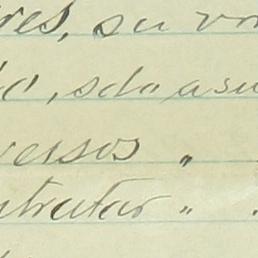 res, su vo
do, sdo asu
versos "
ntratar "